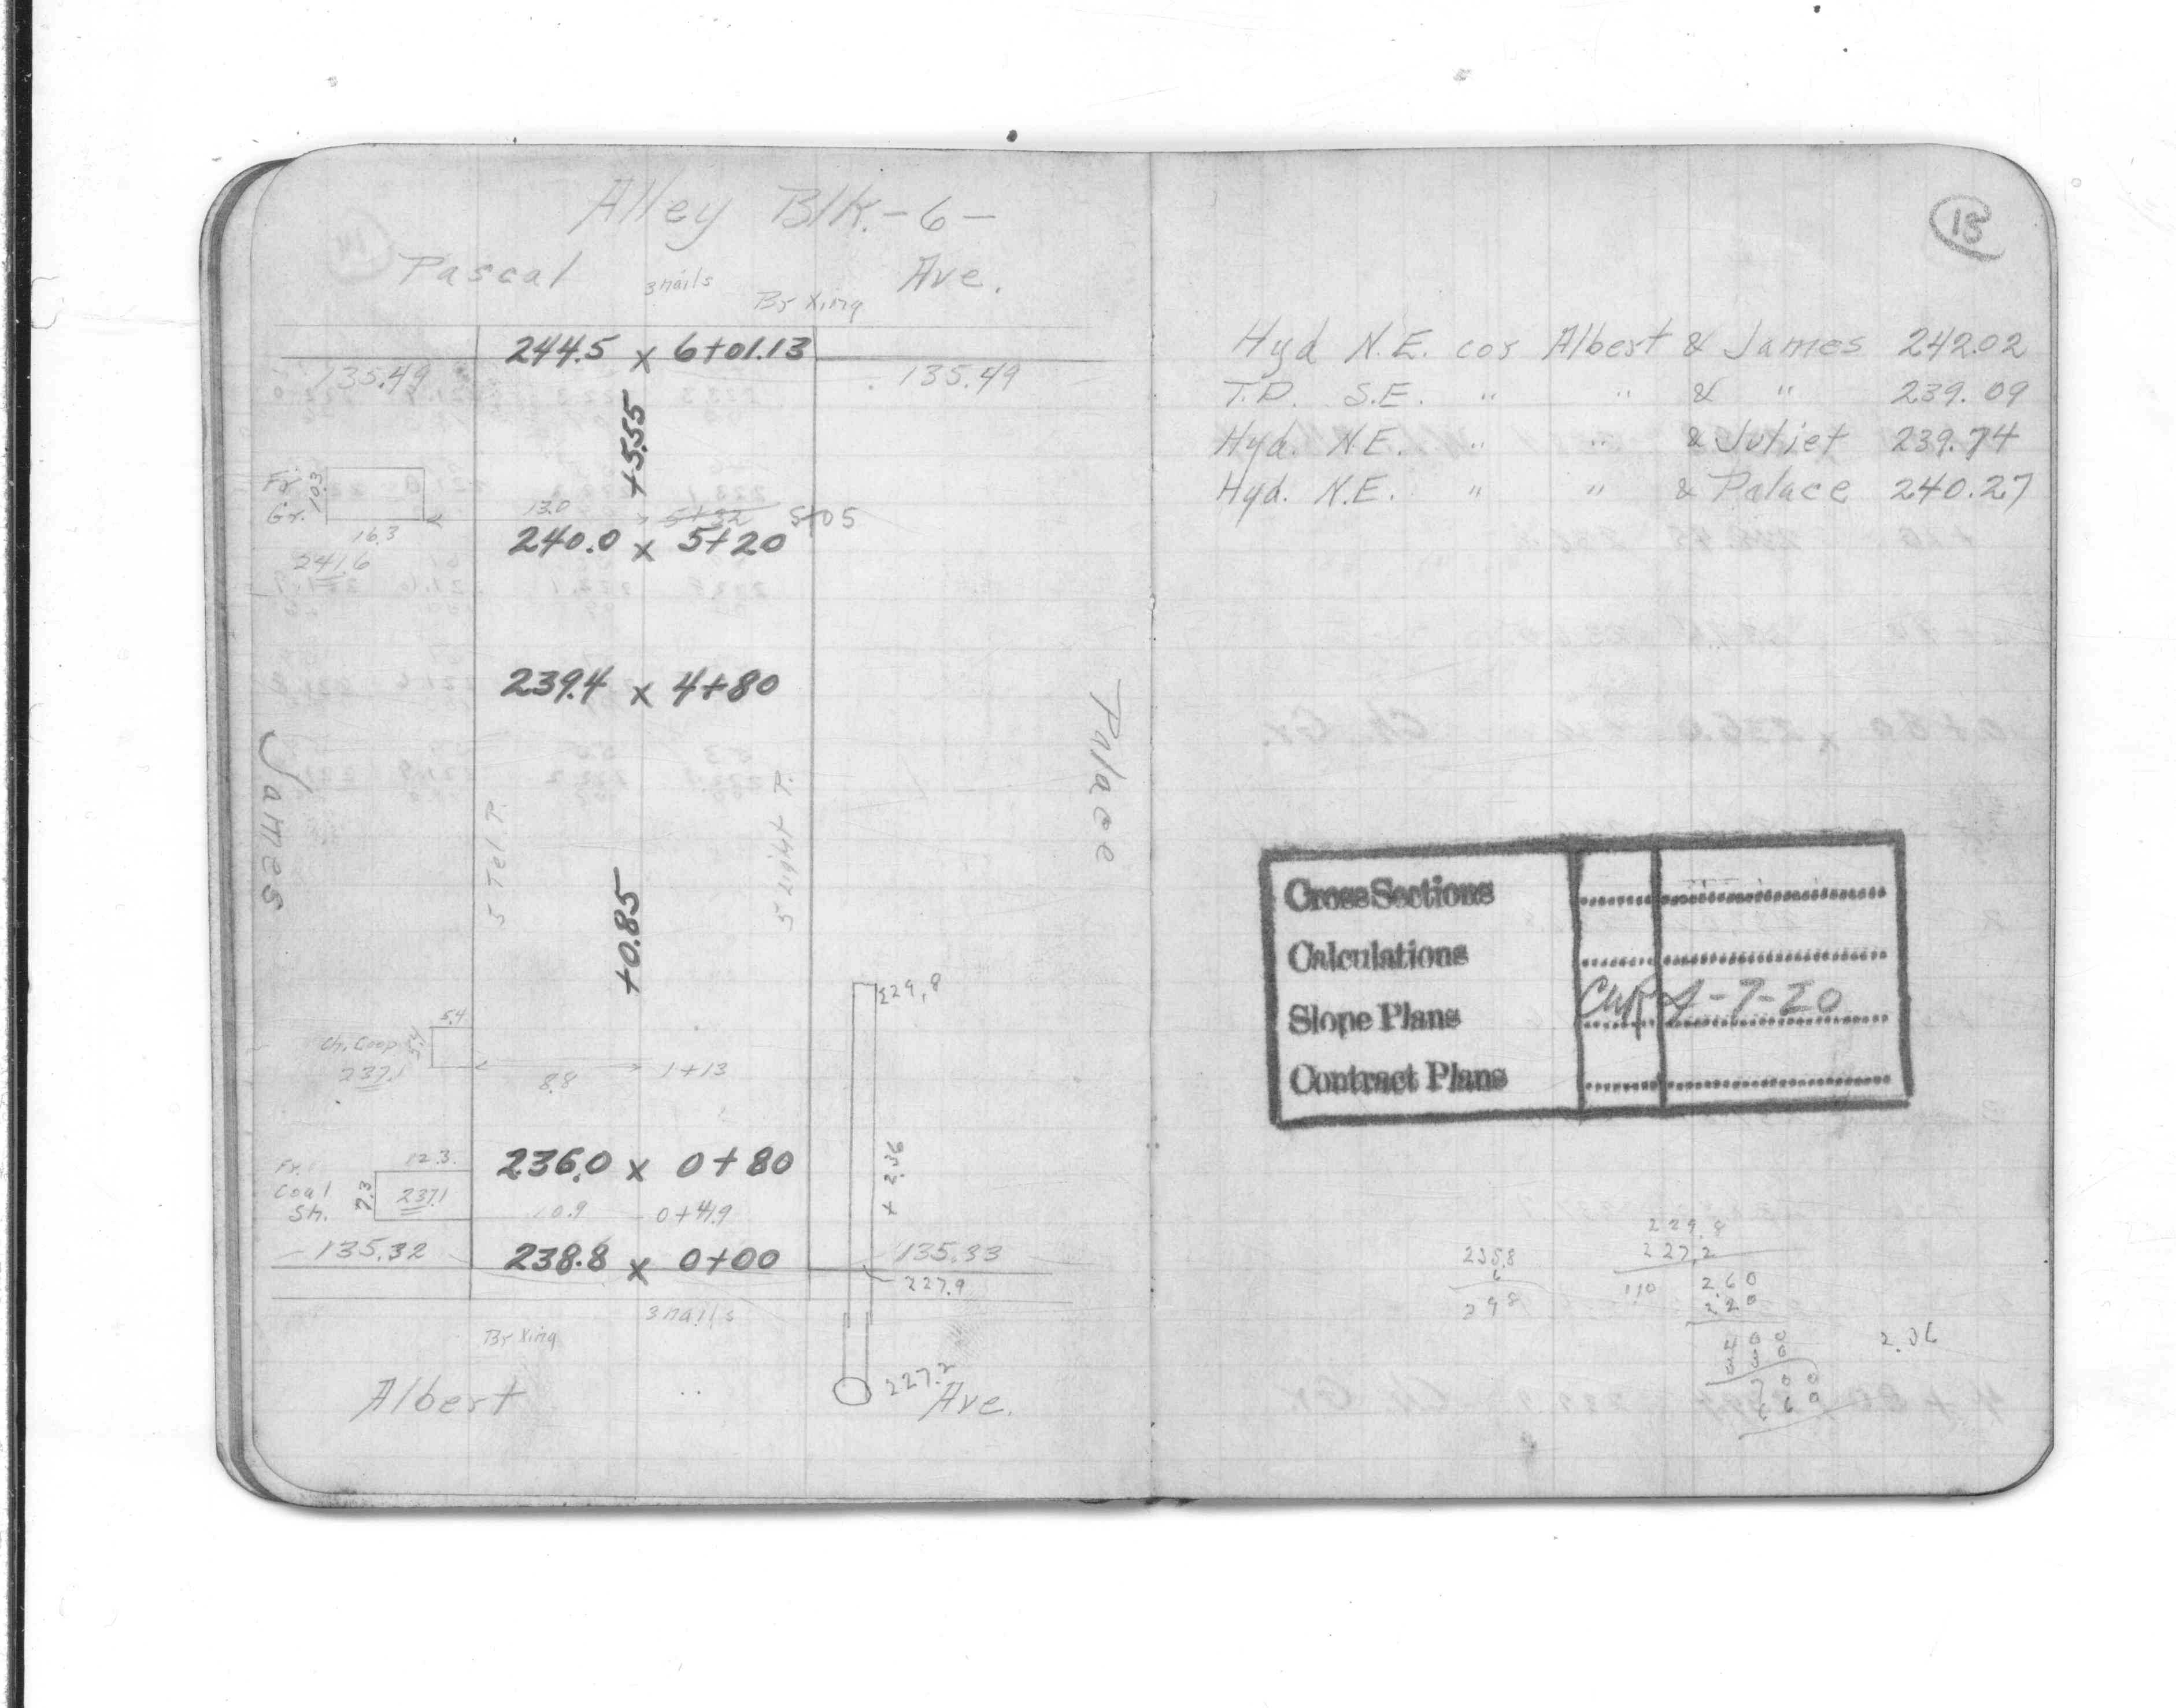 Alley Blk.-6-
Pascal Ave.
3 nails
Br Xing
244.5 x 6+01.13
135.49
135.49
+5.55
Fr.
Gr.
10.3
16.3
241.6
13.0
5+32 5+05
240.0 x 5+20
239.4 x 4+80
James
Palace
5 Tel. P.
5 Light P.
+0.85
229.8
5.4
Ch. Coop 5.4
237.1
8.8
1+13
12.3
Fr.
Coal
Sh.
7.3
237.1
236.0 x 0+80
0.9 0+49
+ 2.36
135.32
238.8 x 0+00
135.33
227.9
3 nails
Br Xing
227.2
Albert Ave.
15
Hyd N.E. cor Albert & James 242.02
T.P. S.E. " " & " 239.09
Hyd. N.E. " " & Juliet 239.74
Hyd. N.E. " " & Palace 240.27
Cross Sections
Calculations
Slope Plans CWR 4-7-20
Contract Plans
229.8
227.2
235.8
6
298
110 2.60
2 20
400
330
700
660
2.36